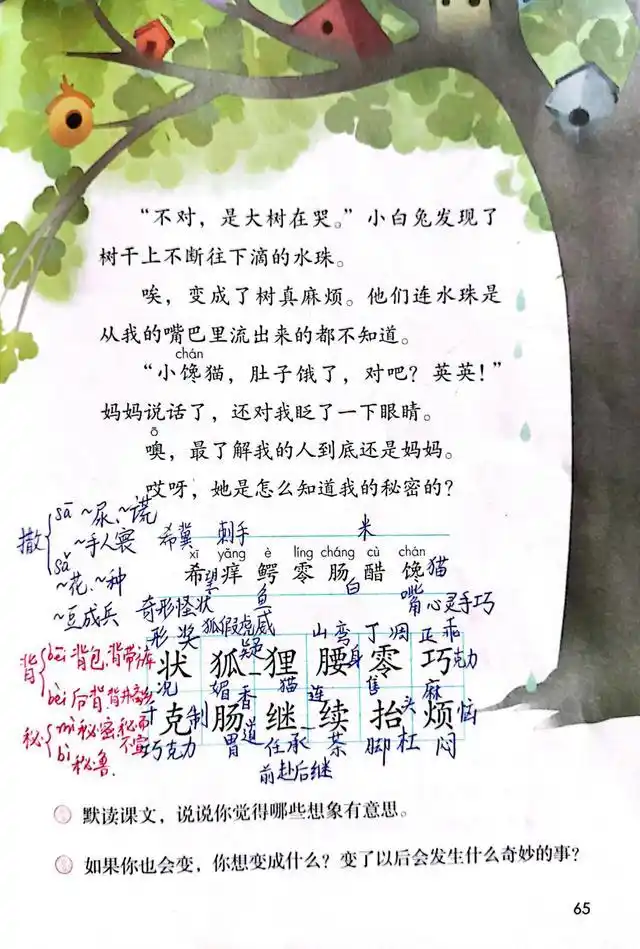 “不对，是大树在哭。”小白兔发现了
树干上不断往下滴的水珠。
唉，变成了树真麻烦。他们连水珠是
从我的嘴巴里流出来的都不知道。
chán
“小馋猫，肚子饿了，对吧？英英！”
妈妈说话了，还对我眨了一下眼睛。
ō
噢，最了解我的人到底还是妈妈。
哎呀，她是怎么知道我的秘密的？
撒 sā ~尿、~谎
~手人寰
sǎ ~花、~种
~豆成兵
希冀 刺手 米
xī yǎng è líng cháng cù chán
希痒鳄零肠醋馋猫
望 鱼 白 嘴
奇形怪状 心灵手巧
形 奖 狐假虎威 山 弯 丁 凋 正 乖
疑 身
状狐狸腰零巧克力
况 媚 猫 售
背 bēi 背包、背带裤
bèi 后背
香 连 头 麻
千克制肠继续抬烦恼
巧克力 胃 道 任 承 茶 脚 杠 闷
前赴后继
秘 mì 秘密、秘而不宣
bì 秘鲁
默读课文，说说你觉得哪些想象有意思。
如果你也会变，你想变成什么？变了以后会发生什么奇妙的事？
65